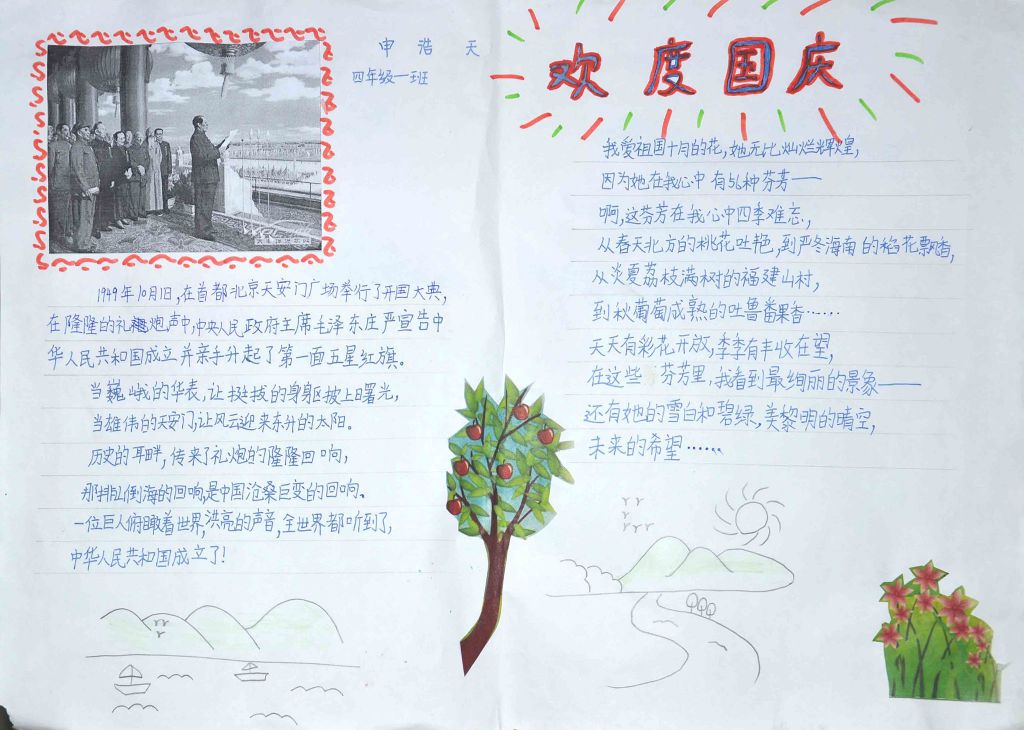 申浩天
四年级一班
1949年10月1日,在首都北京天安门广场举行了开国大典,
在隆隆的礼炮声中,中央人民政府主席毛泽东庄严宣告中
华人民共和国成立并亲手升起了第一面五星红旗。
当巍峨的华表,让挺拔的身躯披上曙光,
当雄伟的天安门,让风云迎来东升的太阳。
历史的耳畔,传来了礼炮的隆隆回响,
那排山倒海的回响,是中国沧桑巨变的回响。
一位巨人俯瞰着世界,洪亮的声音,全世界都听到了,
中华人民共和国成立了!
欢度国庆
我爱祖国十月的花,她无比灿烂辉煌,
因为她在我心中有56种芬芳——
啊,这芬芳在我心中四季难忘,
从春天北方的桃花吐艳,到严冬海南的稻花飘香,
从炎夏荔枝满树的福建山村,
到秋葡萄成熟的吐鲁番果香……
天天有彩花开放,季季有丰收在望,
在这些芬芳里,我看到最绚丽的景象——
还有她的雪白和碧绿,美黎明的晴空,
未来的希望……